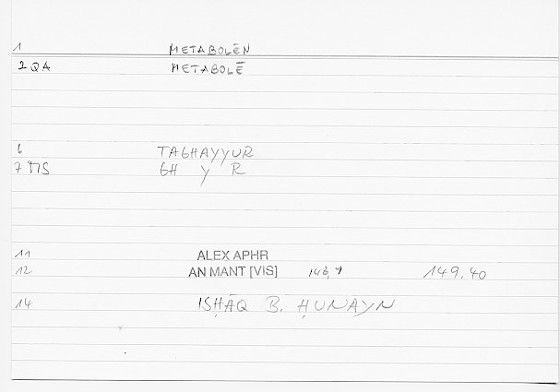 1 METABOLĒN
2 QA METABOLĒ
6 TAGHAYYUR
7 MS GH Y R
11 ALEX APHR
12 AN MANT [VIS] 148, 9 149.40
14 ISḤĀQ B. ḤUNAYN